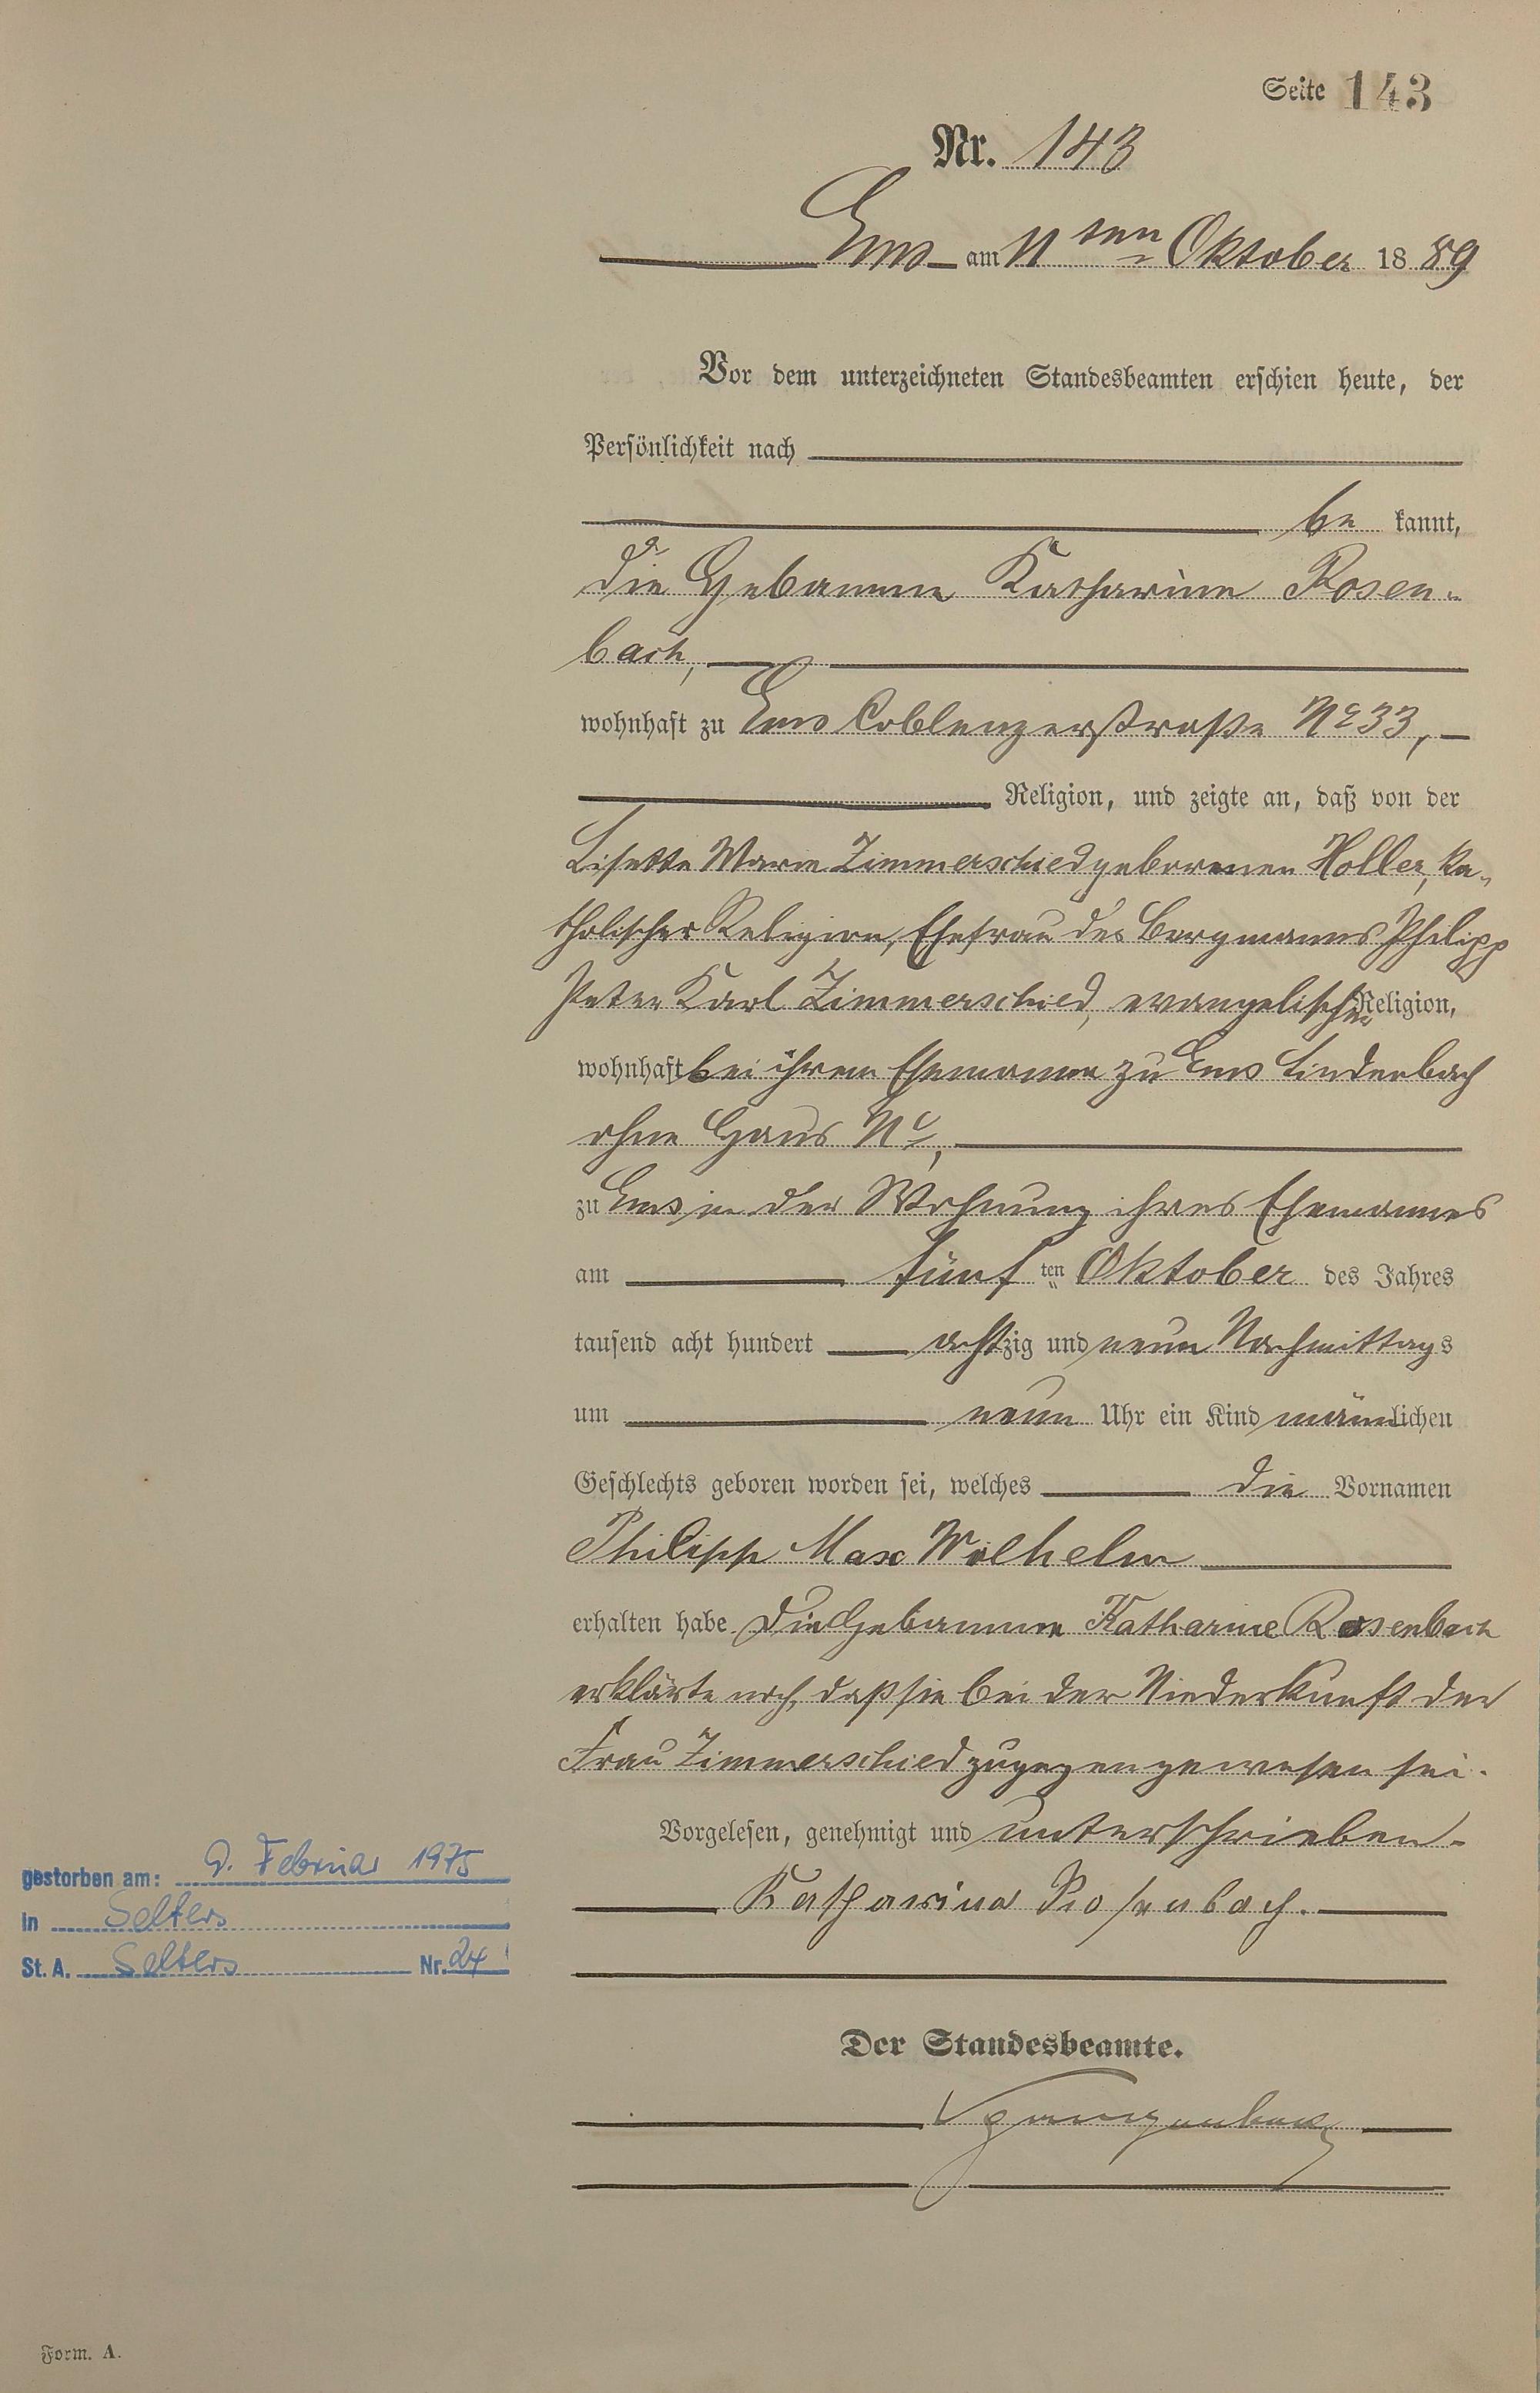 Seite 143
Nr. 143
Ems am 11ten Oktober 1889
Vor dem unterzeichneten Standesbeamten erschien heute, der
Persönlichkeit nach
bekannt,
die Hebamme Katharine Rosen-
bach,
wohnhaft zu Ems Coblenzerstraße No 33,
Religion, und zeigte an, daß von der
Lisette Marie Zimmerschied geborenen Holler, ka-
tholischer Religion, Ehefrau des Bergmanns Philipp
Peter Karl Zimmerschied, evangelischer Religion,
wohnhaft bei ihrem Ehemanne zu Ems Lindenbach
ohne Haus No,
zu Ems in der Wohnung ihres Ehemannes
am fünften Oktober des Jahres
tausend acht hundert achtzig und neun Nachmittags
um neun Uhr ein Kind männlichen
Geschlechts geboren worden sei, welches die Vornamen
Philipp Max Wilhelm
erhalten habe. Die Hebamme Katharine Rosenbach
erklärte noch, daß sie bei der Niederkunft der
Frau Zimmerschied zugegen gewesen sei.
Vorgelesen, genehmigt und unterschrieben.
Katharina Rosenbach.
Der Standesbeamte.
gestorben am: 9. Februar 1975
in Selters
St. A. Selters Nr. 24
Form. A.